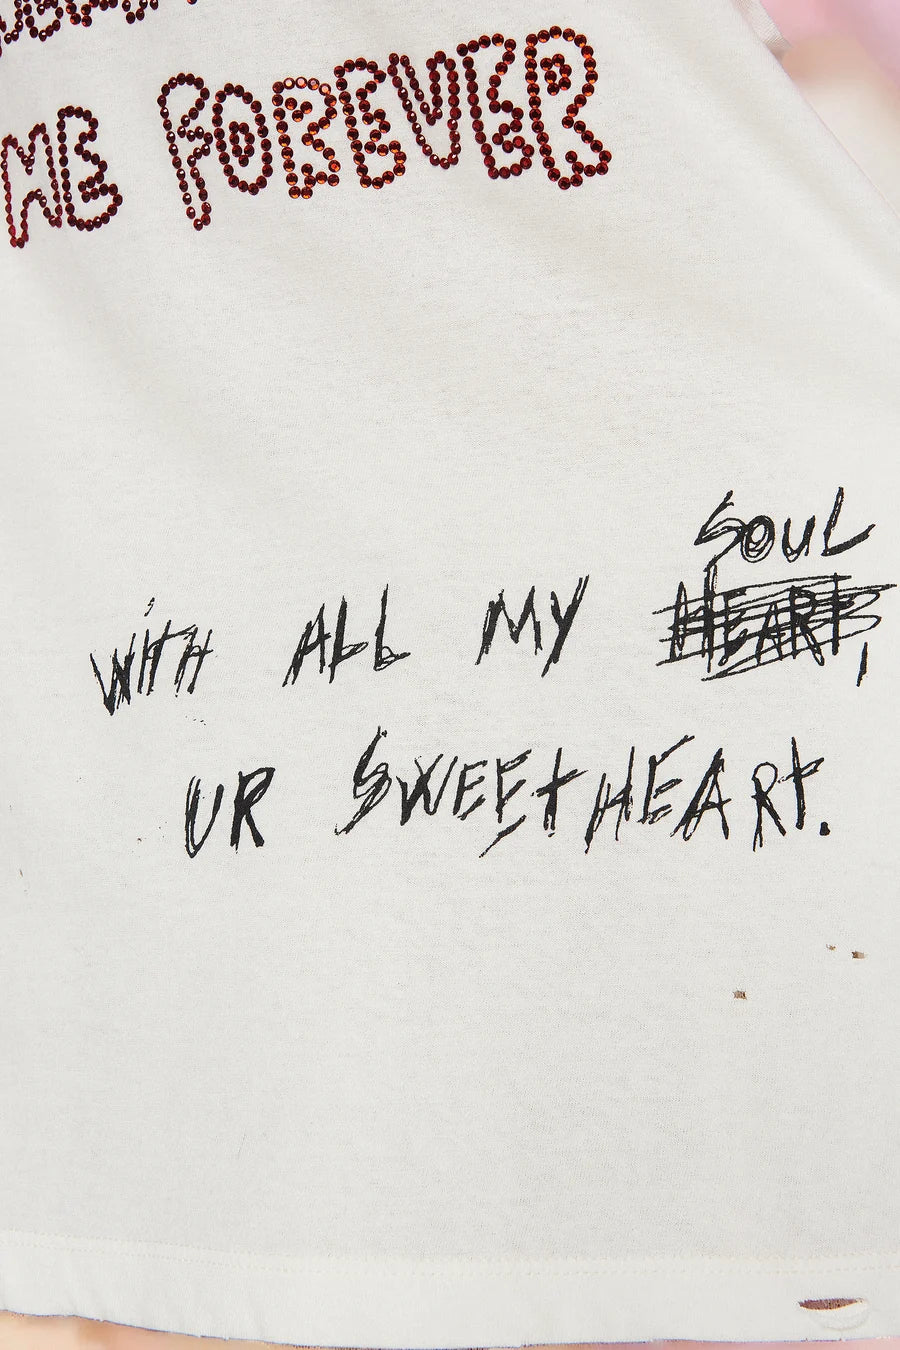 ME FOREVER
SOUL
WiTH ALL MY HEART,
UR SWEEtHEART.